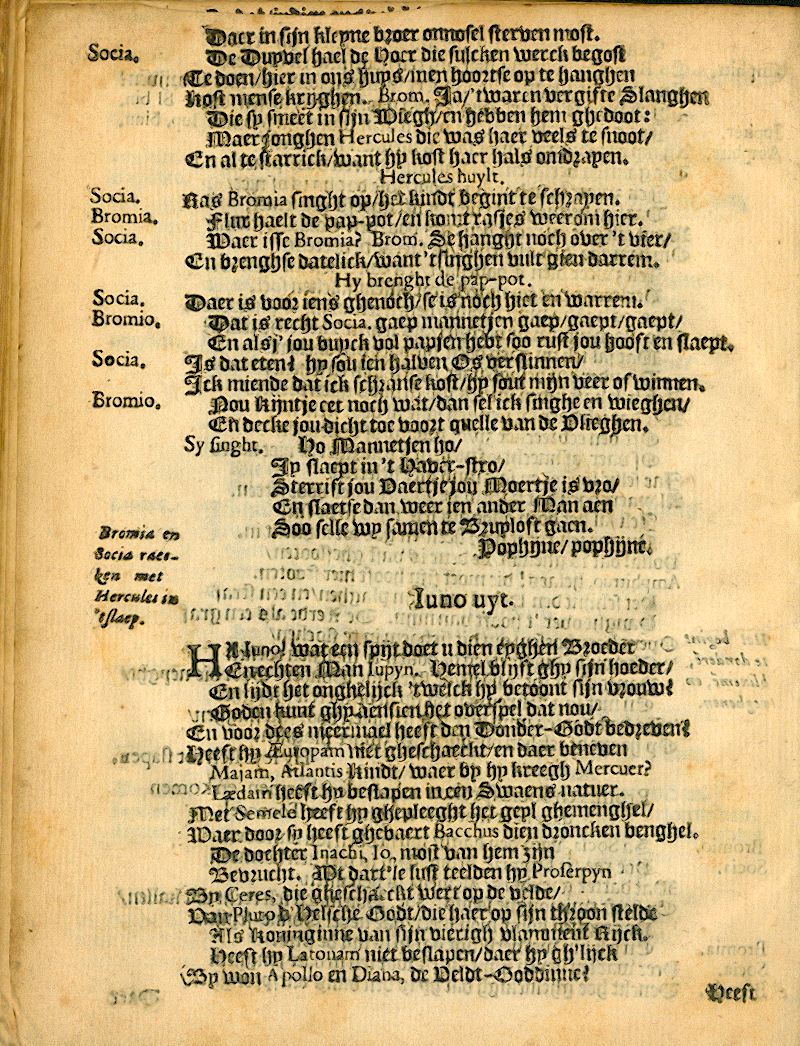 Daer in sijn kleyne broer onnosel sterven most.
Socia. De Duyvel hael de Hoer die sulcken werck begost
Te doen/hier in ons huys/men hoortse op te hanghen
Kost mense krijghen. Brom. Ja/'t waren vergifte Slanghen
Die sy smeet in sijn Wiegh/en hebben hem ghedoot:
Maer jonghen Hercules die was haer veels te snoot/
En al te starrick/want hy kost haer hals omdrayen.
Hercules huylt.
Socia. Kas Bromia singht op/het kindt begint te schrayen.
Bromia. Flux haelt de pap-pot/en komt rasjes weerom hier.
Socia. Waer isse Bromia? Brom. Se hanght noch over 't vier/
En brenghse datelick/want 't singhen vult gien darrem.
Hy brenght de pap-pot.
Socia. Daer is voor iens ghenoch/se is noch hiet en warrem.
Bromio. Dat is recht Socia. gaep mannetjen gaep/gaept/gaept/
En als j' jou buyck vol papjen hebt soo rust jou hooft en slaept.
Socia. Is dat eten? hy sou ien halven Os verslinnen/
Ick miende dat ick schranse kost/hy sout mijn veer of winnen.
Bromio. Nou Kijntje eet noch wat/dan sel ick singhe en wieghen/
En decke jou dicht toe voort quelle van de Vlieghen.
Sy singht. Ho Mannetjen ho/
Jy slaept in 't Haver-stro/
Sterrist jou Vaertje jou Moertje is vro/
En slaetse dan weer ien ander Man aen
Soo selle wy samen te Bruyloft gaen.
Pophijne/ pophijne.
Bromia en
Socia rae-
ken met
Hercules in
'tslaep.
Iuno uyt.
HA Juno! wat een spijt doet u dien eyghen Broeder
En echten Man Iupyn. Hemel blijft ghy sijn hoeder/
En lijdt het onghelijck 'twelck hy betoont sijn vrouw?
Goden kunt ghy aensien het overspel dat nou/
En voor dees meermael heeft den Donder-Godt bedreven?
Heeft hy Æuropam niet gheschaeckt/en daer beneven
Majam, Atlantis Kindt/ waer by hy kreegh Mercuer?
Lædam heeft hy beslapen in een Swaens natuer.
Met Semele heeft hy ghepleeght het geyl ghemenghel/
Waer door sy heeft ghebaert Bacchus dien droncken benghel.
De dochter Inachi, Io, most van hem zijn
Bevrucht. Wt dart'le lust teelden hy Proserpyn
By Ceres, die gheschaeckt wert op de velde/
Van Pluto d' Helsche Godt/die haer op sijn throon stelde
Als Koninginne van sijn vierigh vlamment Rijck.
Heeft hy Latonam niet beslapen/daer hy gh'lijck
By won Apollo en Diana, de Veldt-Goddinne?
Heeft